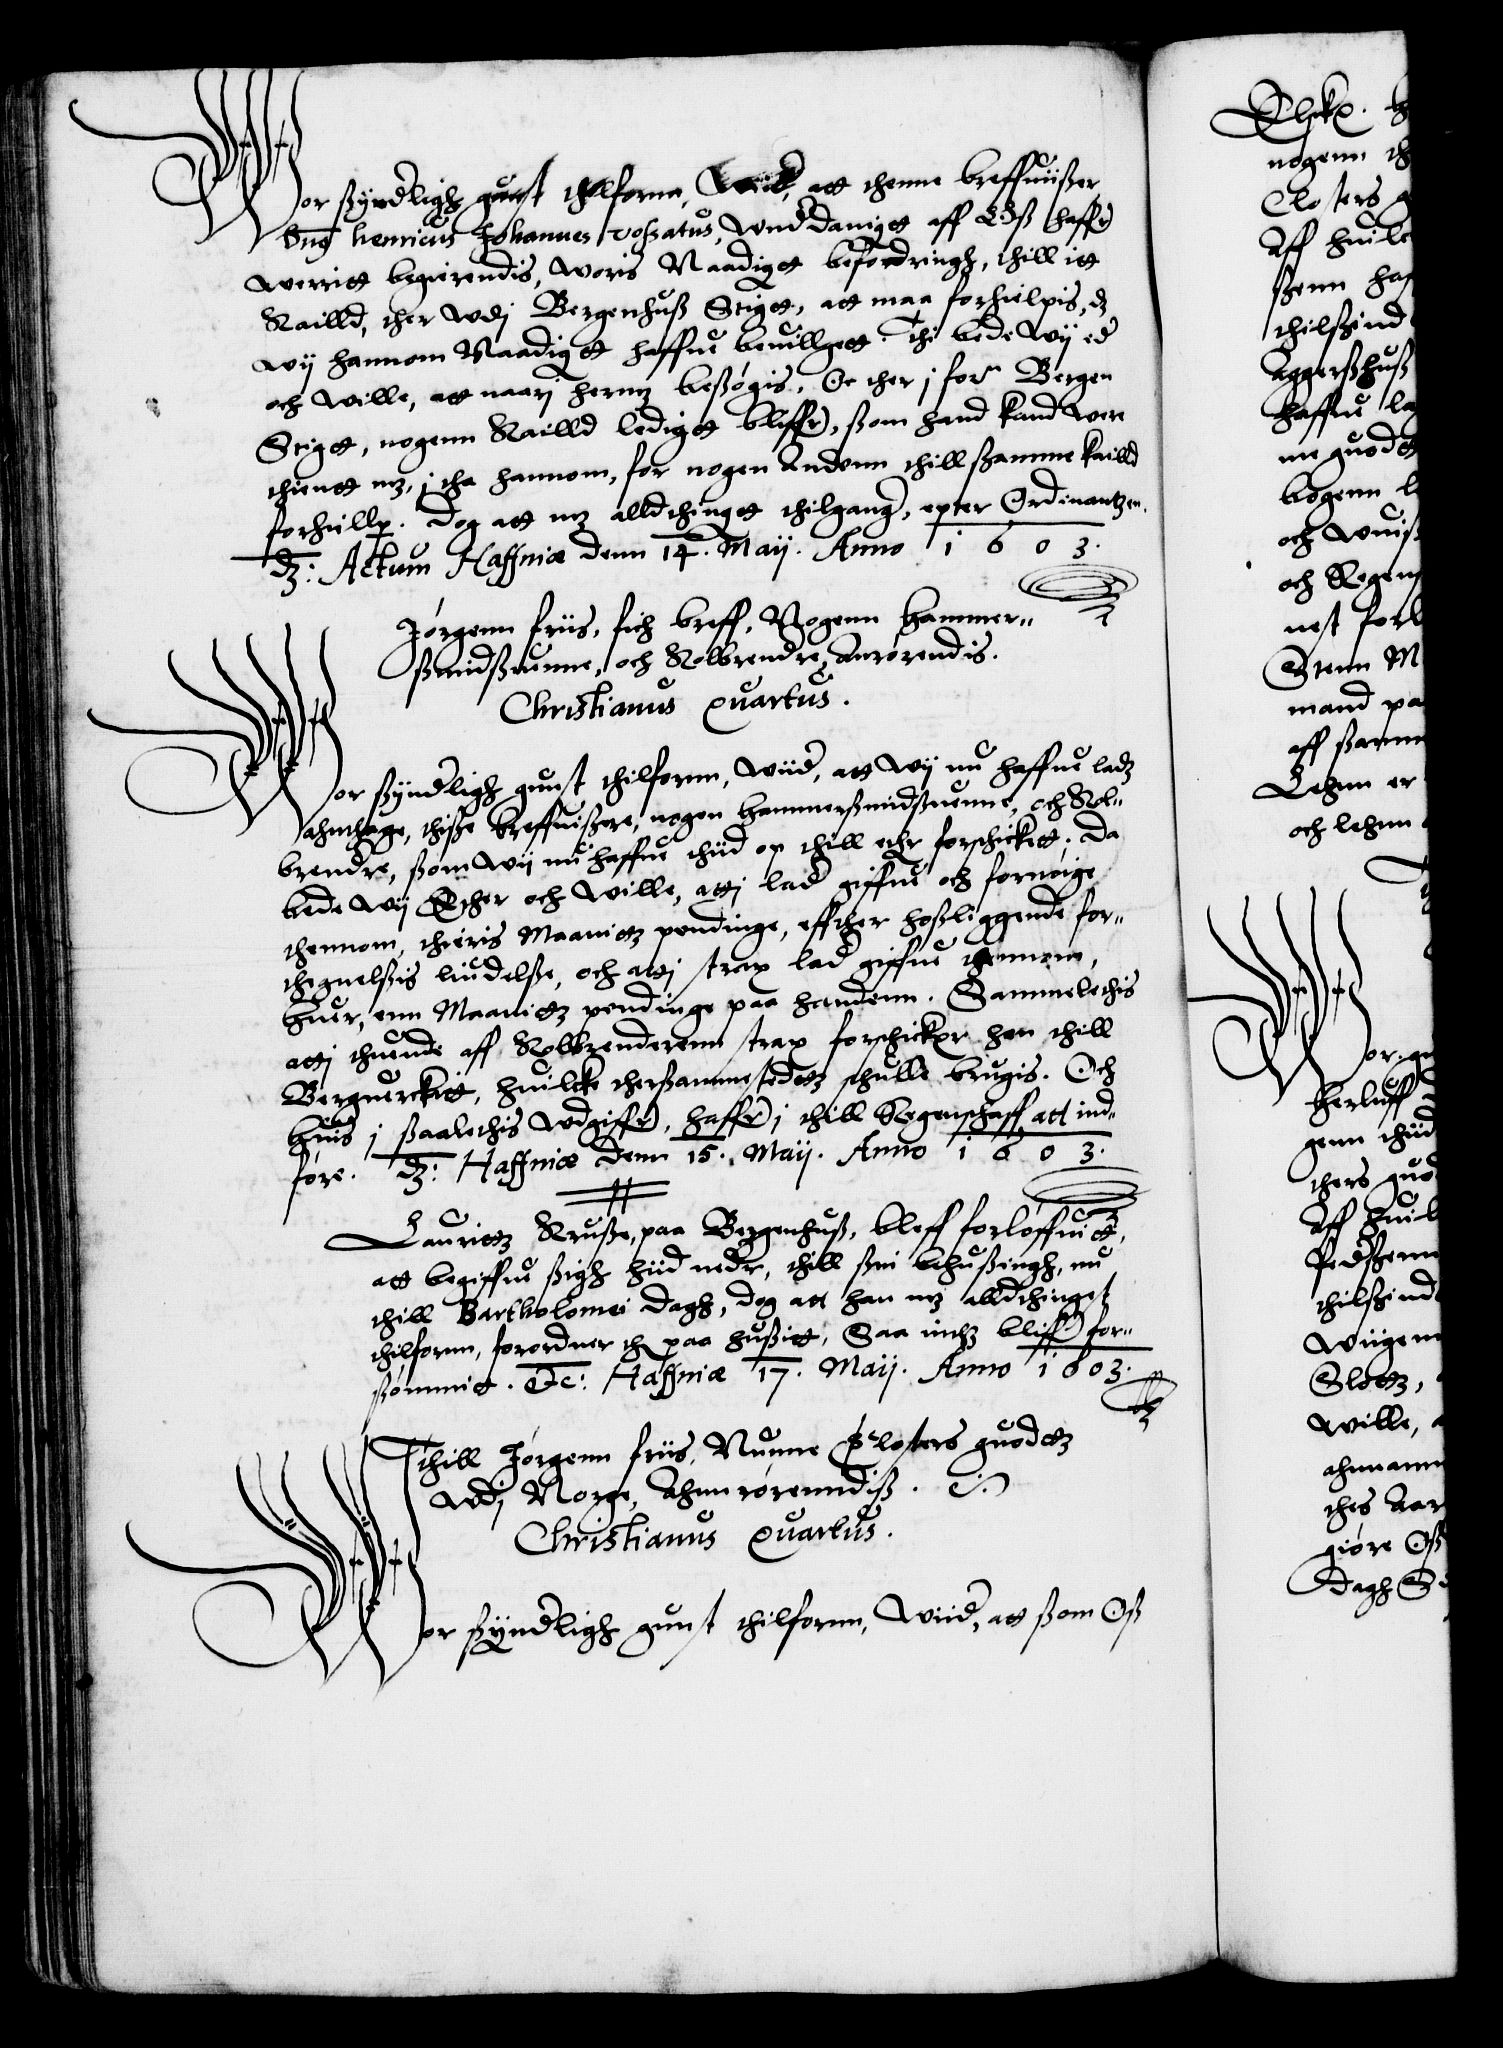 Wor ßynderligh gunst thilforna, Wiid, att thenne breffuiißer
Hans henricus Johannes rossatus, Wnderdanigst aff Oß haffr
werritt begierendis, Woris Naadigst befordringh, thill itt
Kailld, ther Wdj Bergenhuß Stigtt, att maa forhielpis, dz
wy hannom Naadigst haffue beuillgett. Thi bede Wy eder
och wille, att naarj hermz beßøgis, Oc ther j forne Bergen
Stigtt, nogenn Kailld ledigtt bliffr, ßom hand kand Were
thientt mz, j tha hannom, for nogen Andenn thill ßamme kailld
forhielper. Dog att mz alldthingtt thilgangr, epter Ordinantzen.
Dz: Actum Haffniæ denn 14. Maij. Anno 1603.
Jørgenn friis, fich breff, Nogenn hammer-
ßmidßuenne, och Kolbrendre, Anrørendis.
Christianus Quartus.
Wor ßynderligh gunst thilfornn, Wiid, att Wy nu haffue ladz
ahnthage, thiße breffuißere, nogen hammerßmidßuenne, och Kol-
brendre, ßom Wy nu haffue thiid op thill ethr forschickett, Da
bede Wy Ether och Wille, attj lader giffue och fornøige
thennom, thieris Maanitz pendinge, effther hoßliggende for-
thegnelßis liudelße, och attj strax lader giffue thennom,
huer, enn Maanitz pendinge paa handenn. Sammelethis
attj thuende aff Kolbrenderenn strax forschicker hen thill
Berguerckitt, huilcke therßammestedttz schulle brugis. Och
huis j ßaalethis Wdgiffr, haffr j thill Regenschaff att ind-
føre. Dz: Haffniæ denn 15. Maij. Anno 1603.
Lauritz Kruße, paa Bergenhuß, bleff forløffuitt,
att begiffue ßigh hiid nedr, thill ßin behußingh, nu
thill Bartholomei dagh, dog att han mz alldthingest
thilfornn, forordner th paa hußitt, Saa inthz bliffr for-
ßømmit. Etc: Haffniæ 17. Maij. Anno 1603.
Thill Jørgenn friis, Nunne Closters guodttz
Wdj Norge, Ahnrørenndiß.
Christianus Quartus.
Wor ßynderligh gunst thilfornn, Wiid, att ßom Oß
nogenn
Closters
Aff huile
thilßind
Aggerßhuß
haffue
me guodtt
och
nest forl
Stenn M
mand pa
aff ßamm
Lehnn er
och lehnn
Herluff
genn thiid
thers guo
Aff huil
thilßind
Slottz,
Wille,
ahnnamm
thes Aar
giøre Oß
Dagh